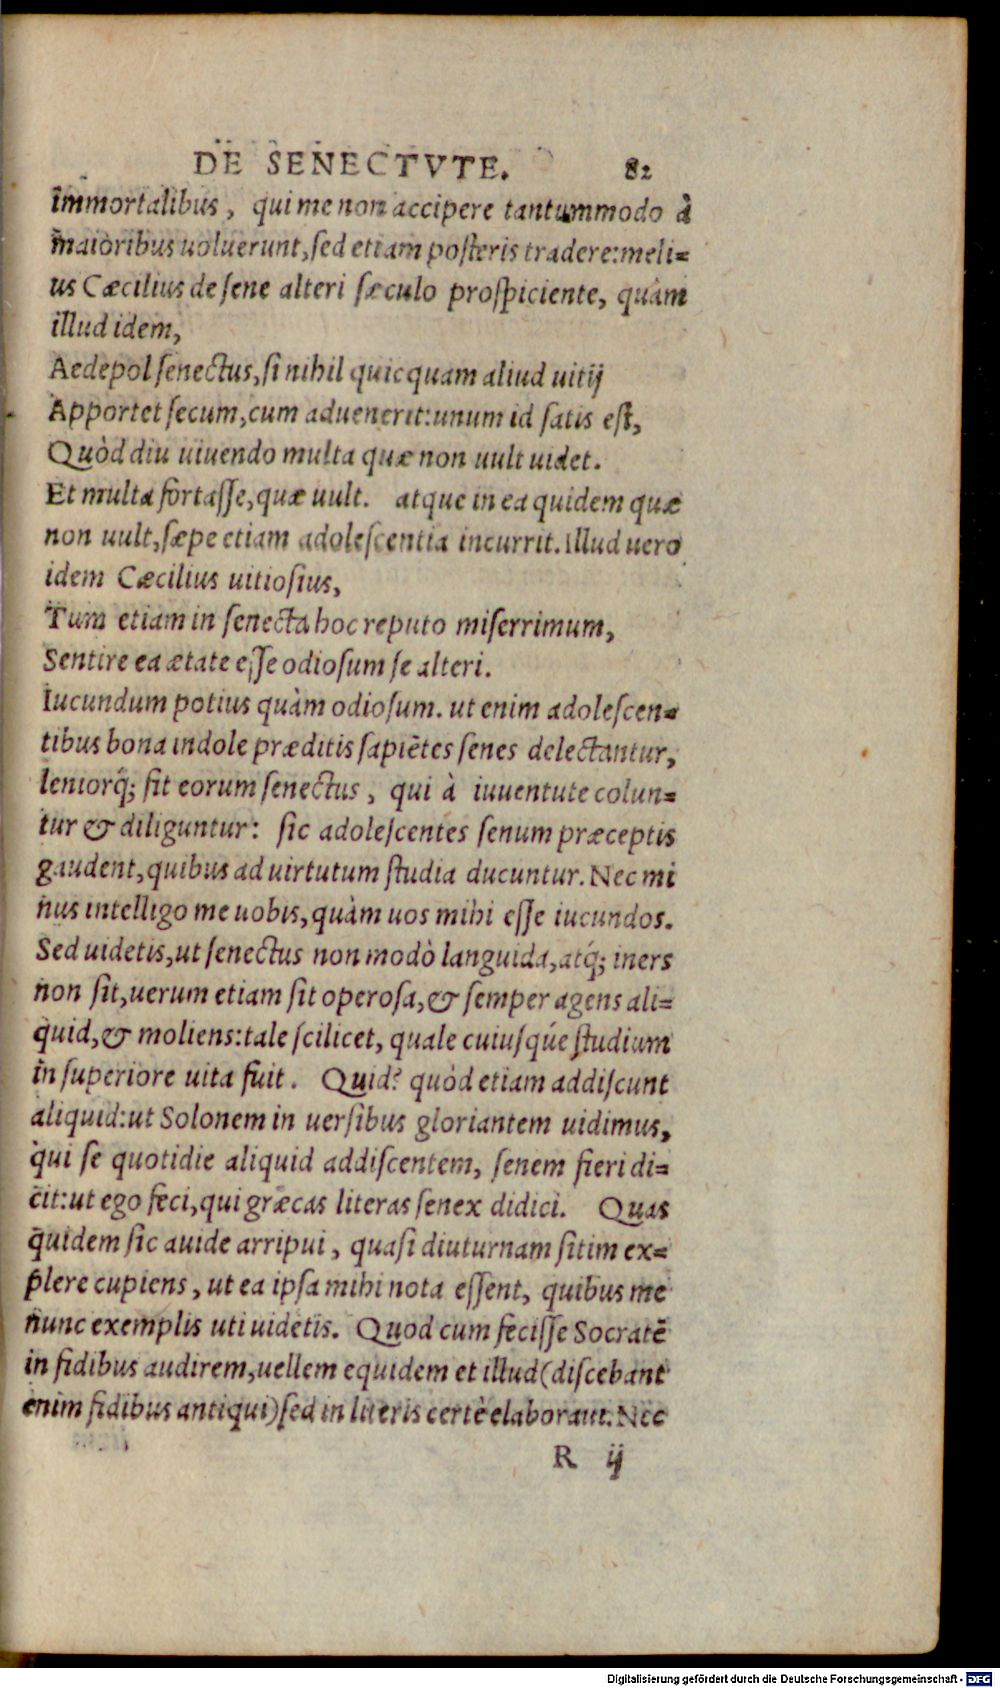 DE SENECTVTE. 82
immortalibus, qui me non accipere tantummodo à
maioribus uoluerunt, sed etiam posteris tradere: meli=
us Cæcilius de sene alteri sæculo prospiciente, quàm
illud idem,
Aedepol senectus, si nihil quicquam aliud uitij
Apportet secum, cum aduenerit: unum id satis est,
Quòd diu uiuendo multa quæ non uult uidet.
Et multa fortasse, quæ uult. atque in ea quidem quæ
non uult, sæpe etiam adolescentia incurrit. Illud uero
idem Cæcilius uitiosius,
Tum etiam in senecta hoc reputo miserrimum,
Sentire ea ætate esse odiosum se alteri.
Iucundum potius quàm odiosum. ut enim adolescen=
tibus bona indole præditis sapiẽtes senes delectantur,
leniorq́; fit eorum senectus, qui à iuuentute colun=
tur & diliguntur: sic adolescentes senum præceptis
gaudent, quibus ad uirtutum studia ducuntur. Nec mi
nus intelligo me uobis, quàm uos mihi esse iucundos.
Sed uidetis, ut senectus non modò languida, atq́; iners
non sit, uerum etiam sit operosa, & semper agens ali=
quid, & moliens: tale scilicet, quale cuiusq́ue studium
in superiore uita fuit. Quid? quòd etiam addiscunt
aliquid: ut Solonem in uersibus gloriantem uidimus,
qui se quotidie aliquid addiscentem, senem fieri di=
cit: ut ego feci, qui græcas literas senex didici. Quas
quidem sic auide arripui, quasi diuturnam sitim ex=
plere cupiens, ut ea ipsa mihi nota essent, quibus me
nunc exemplis uti uidetis. Quod cum fecisse Socratẽ
in fidibus audirem, uellem equidem et illud (discebant
enim fidibus antiqui) sed in literis certè elaboraui. Nec
R ij
Digitalisierung gefördert durch die Deutsche Forschungsgemeinschaft - DFG